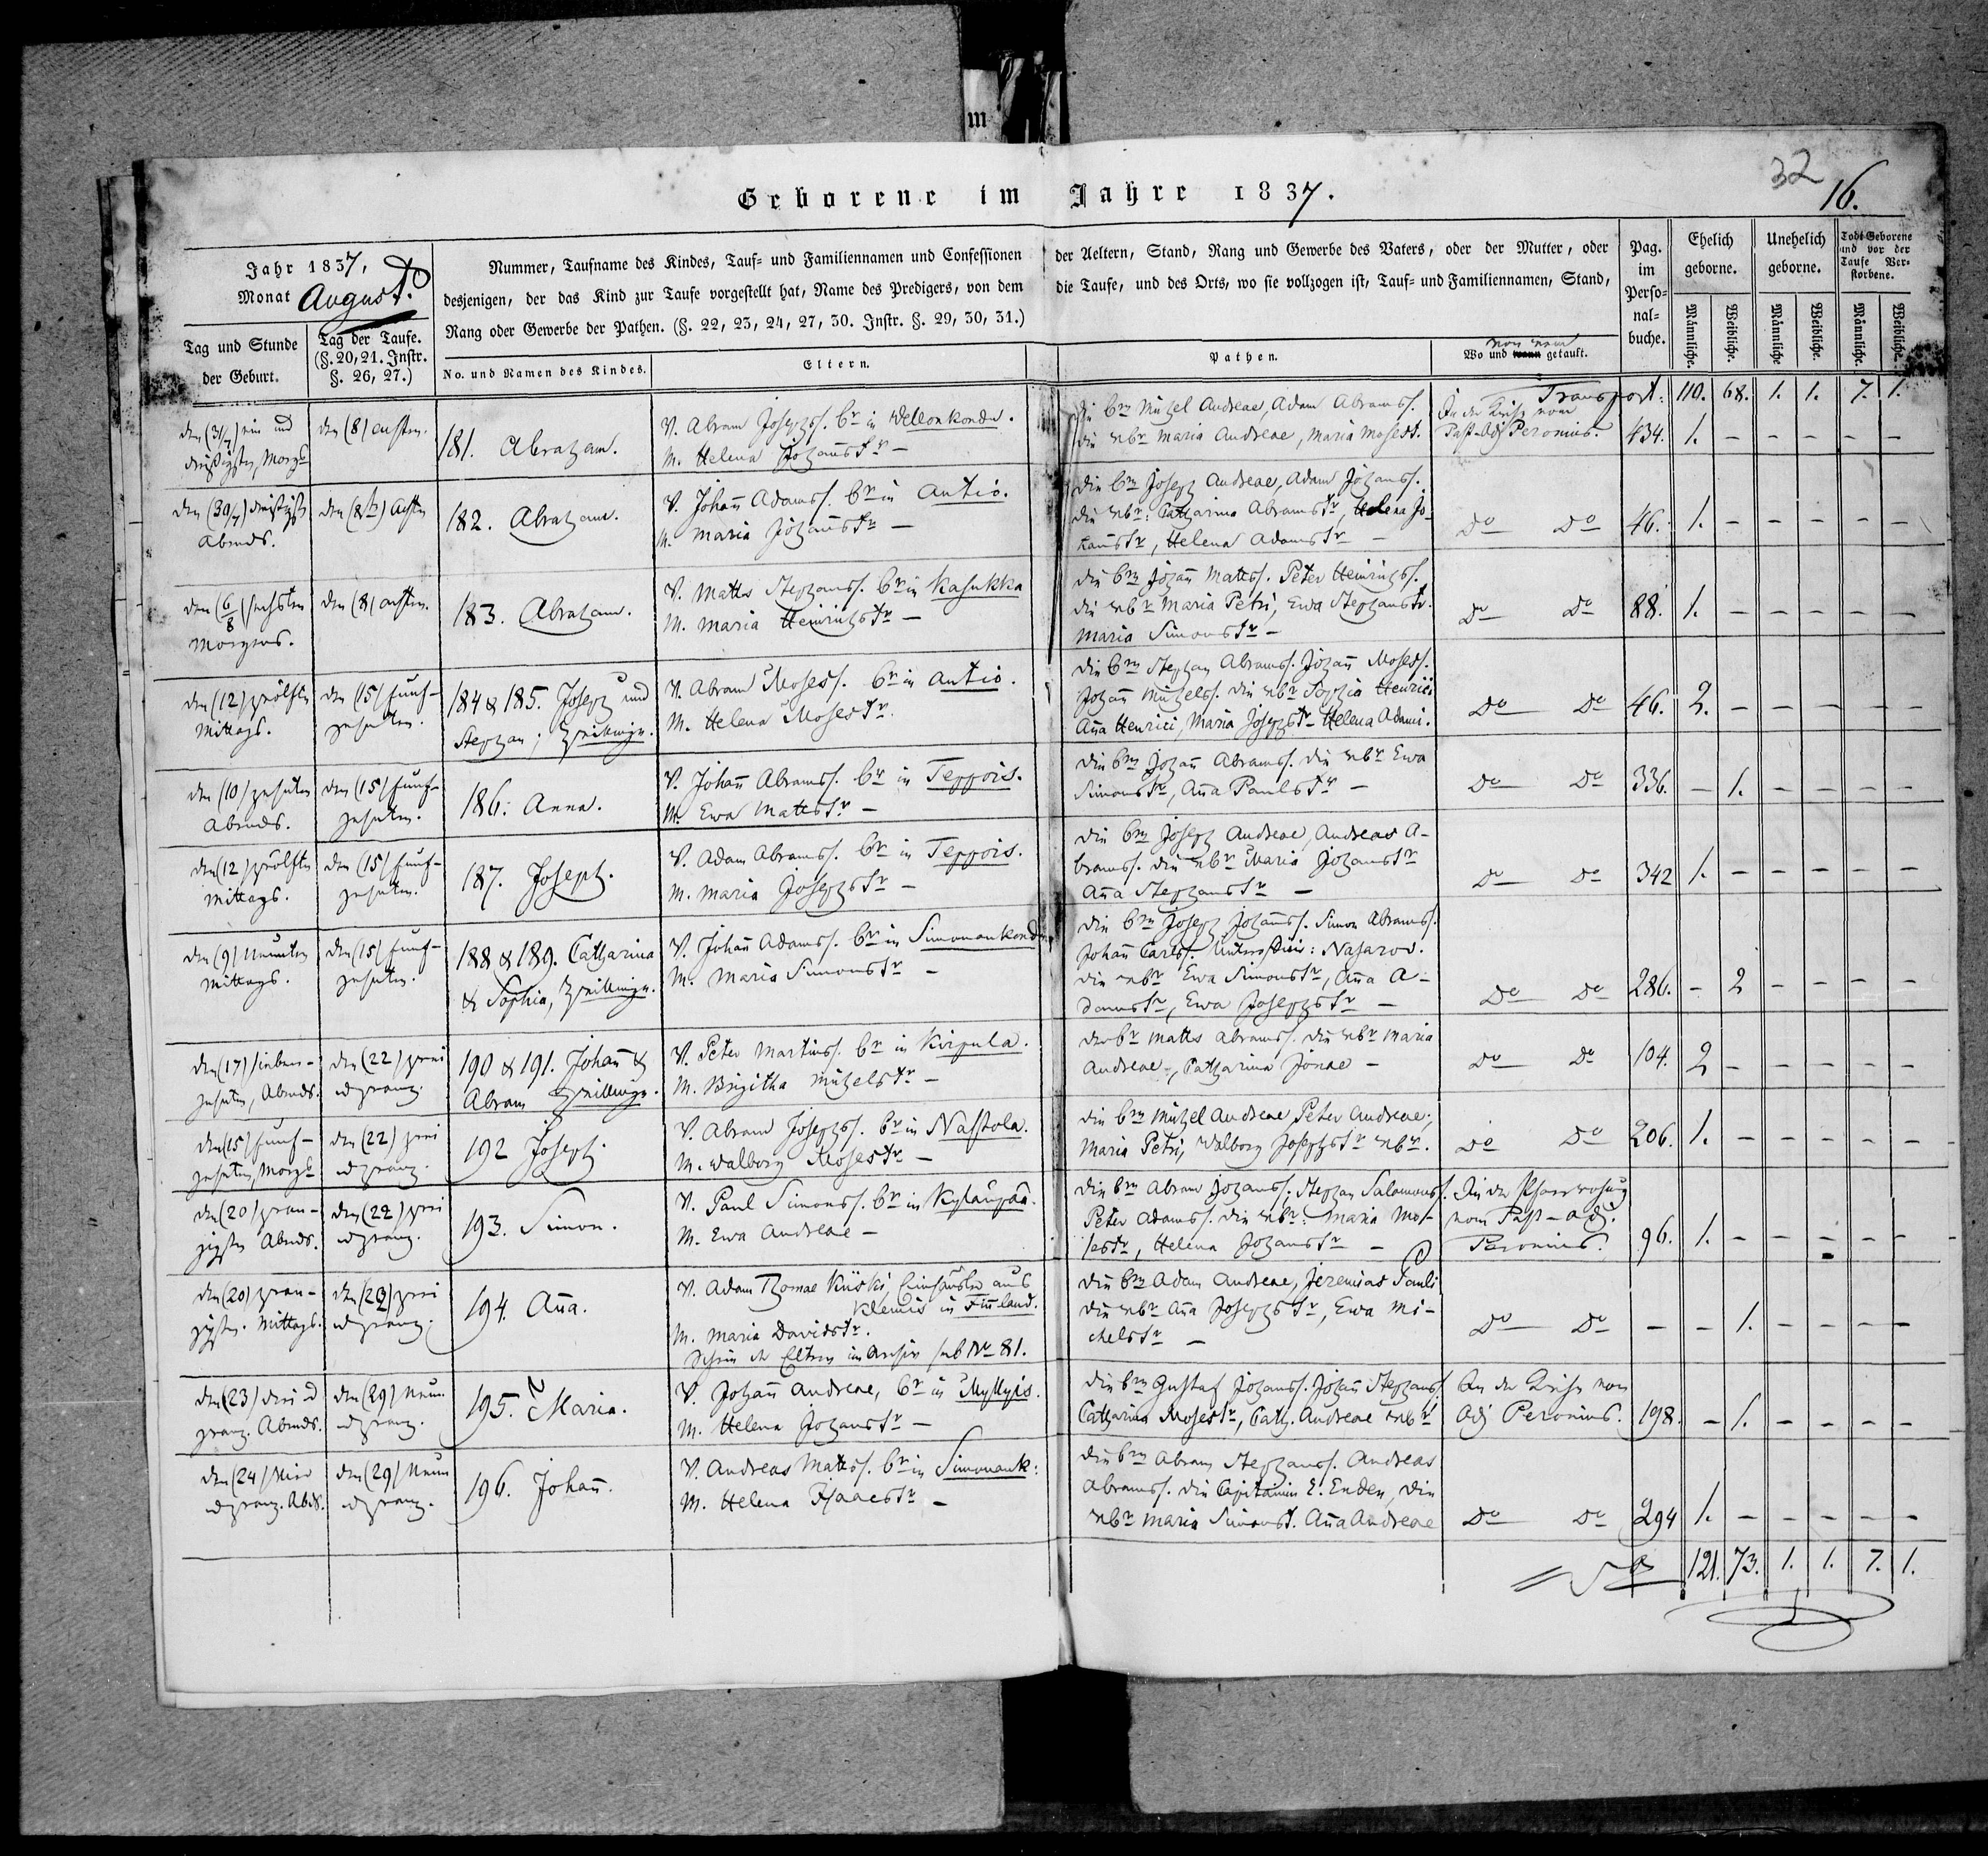 m
32
16.
Geborene im Jahre 1837.
Jahr 1837,
Monat August.
Tag und Stunde
der Geburt.
Tag der Taufe.
(§. 20, 21. Instr.
§. 26, 27.)
Nummer, Taufname des Kindes, Tauf- und Familiennamen und Confessionen der Aeltern, Stand, Rang und Gewerbe des Vaters, oder der Mutter, oder
desjenigen, der das Kind zur Taufe vorgestellt hat, Name des Predigers, von dem die Taufe, und des Orts, wo sie vollzogen ist, Tauf- und Familiennamen, Stand,
Rang oder Gewerbe der Pathen. (§. 22, 23, 24, 27, 30. Instr. §. 29, 30, 31.)
No. und Namen des Kindes.
Eltern.
Pathen.
von wem
Wo und wann getauft.
Pag.
im
Perso-
nal-
buche.
Ehelich
geborne.
Unehelich
geborne.
Todt-Geborene
und vor der
Taufe Ver-
storbene.
Männliche.
Weibliche.
Männliche
Weibliche.
Männliche.
Weibliche.
Transport: 110. 68. 1. 1. 7. 1.
den (31/7) ein und
dreißigsten, Morgs
den (8) achten.
181. Abraham.
V. Abram Josephss. br in Wellonkonde.
M. Helena Johanstr –
die brn Michel Andreae, Adam Abramss.
die wbr Maria Andreae, Maria Mosest.
In der Kirche vom
Past-Adj Peronius.
434. 1. – – – – –
den (30/7) dreißigst
Abends.
den (8ts) achten
182. Abraham.
V. Johañ Adamss. br in Antio.
M. Maria Johanstr –
die brn Joseph Andreae, Adam Johanss.
die wbr: Catharina Abramstr, Helena Jo-
hanstr, Helena Adamstr –
Do Do
46. 1. – – – – –
den (6/8) sechsten
Morgens.
den (8) achten.
183. Abraham.
V. Matts Stephanss. br in Kasukka
M. Maria Heinrichstr –
die brn Johañ Mattss. Peter Heinrichss.
die wbr Maria Petri, Ewa Stephanstr.
Maria Simonstr –
Do Do
88. 1. – – – – –
den (12) zwölften
Mittags.
den (15) funf-
zehnten.
184 & 185. Joseph und
Stephan; Zwillinge.
V. Abram Mosess. br in Antio.
M. Helena Mosestr.
die brn Stephan Abramss. Johañ Mosess.
Johañ Michelss. die wbr Sophia Henrici
Aña Henrici, Maria Josephstr Helena Adami.
Do Do
46. 2. – – – – –
den (10) zehnten
Abends.
den (15) funf-
zehnten.
186. Anna.
V. Johañ Abramss. br in Teppois.
M. Ewa Mattstr –
die brn Johañ Abramss. die wbr Ewa
Simonstr, Aña Paulstr –
Do Do
336. – 1. – – – –
den (12) zwölften
Mittags.
den (15) funf-
zehnten.
187. Joseph.
V. Adam Abramss. br in Teppois.
M. Maria Josephstr –
die brn Joseph Andreae, Andreas A-
bramss. die wbr Maria Johanstr
Aña Stephanstr –
Do Do
342 1. – – – – –
den (9) neunten
Mittags.
den (15) funf-
zehnten.
188 & 189. Catharina
& Sophia, Zwillinge.
V. Johañ Adamss. br in Simonankond
M. Maria Simonstr –
die brn Joseph Johanss. Simon Abramss.
Johañ Carlss. Nasarov.
die wbr Ewa Simonstr, Aña A-
damstr, Ewa Josephstr –
Do Do
286. – 2 – – – –
den (17) sieben-
zehnten, Abends.
den (22) zwei
u zwanz.
190 & 191. Johañ &
Abram Zwillinge.
V. Peter Martinss. br in Kirpula.
M. Brigitha Michelstr –
der br Matts Abramss. die wbr Maria
Andreae, Catharina Jonae –
Do Do
104. 2 – – – – –
den (15) funf-
zehnten, Morgs
den (22) zwei
u zwanz.
192 Joseph
V. Abram Josephss. br in Nastola.
M. Walborg Mosestr –
die brn Michel Andreae, Peter Andreae,
Maria Petri, Walborg Josephstr wbr.
Do Do
206. 1. – – – – –
den (20) zwan-
zigsten Abends.
den (22) zwei
u zwanz.
193. Simon.
V. Paul Simonss. br in Kylänpää.
M. Ewa Andreae –
die brn Abram Johanss; Stephan Salomonss.
Peter Adamss. die wbr: Maria Mo-
sestr, Helena Johanstr –
In der Pfarrwohng
vom Past-adj.
Peronius.
96. 1. – – – – –
den (20) zwan-
zigsten. Mittags.
den (22) zwei
u zwanz.
194. Aña.
V. Adam Thomae Kiiski, aus
Klemis in Fiñland.
M. Maria Davidstr.
Schein der Eltern im Archiv sub No 81.
die brn Adam Andreae, Jeremias Pauli
die wbr Aña Josephstr, Ewa Mi-
chelstr –
Do Do
– – 1. – – – –
den (23) drei u
zwanz. Abends.
den (29) neun
u zwanz.
195. Maria.
V. Johañ Andreae, br in Myllyis.
M. Helena Johanstr –
die brn Gustaf Johanss. Johañ Stephanss.
Catharina Mosestr, Cath. Andreae wbr
In der Kirche vom
Adj Peronius.
198. – 1. – – – –
den (24) vier
u zwanz. Abds.
den (29) neun
u zwanz.
196. Johañ.
V. Andreas Mattss. br in Simonank:
M. Helena Isaacstr –
die brn Abram Stephanss. Andreas
Abramss. die Capitainin E. Enden, die
wbr Maria Simonst. Aña Andreae
Do Do
294 1. – – – – –
121. 73. 1. 1. 7. 1.